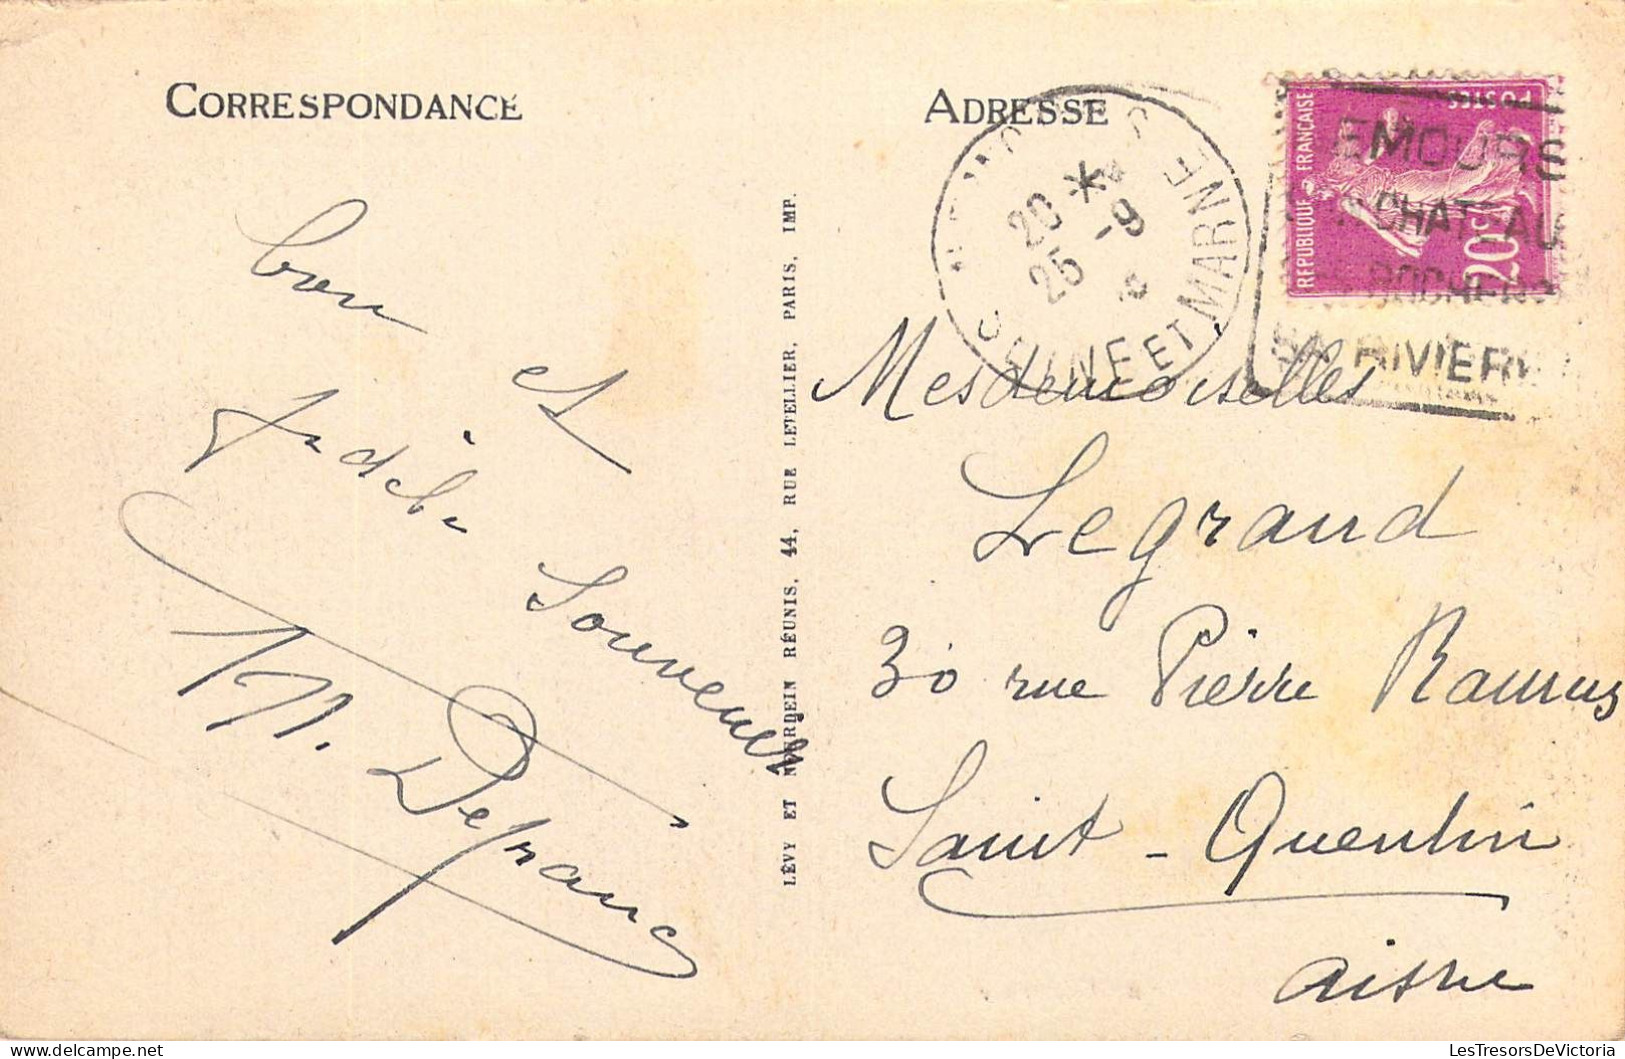 CORRESPONDANCE
ADRESSE
Bon
et
fidèle
Souvenir
M. Defrance
LÉVY ET NEURDEIN RÉUNIS, 44, RUE LETELLIER, PARIS, IMP.
20 * 
25 -9
SEINE ET MARNE
POSTES
REPUBLIQUE FRANÇAISE
20c
EMOURS
CHATEAU
ROCHERS
SA RIVIERE
Mesdemoiselles
Legrand
30 rue Pierre Ramus
Saint-Quentin
Aisne
LesTresorsDeVictoria